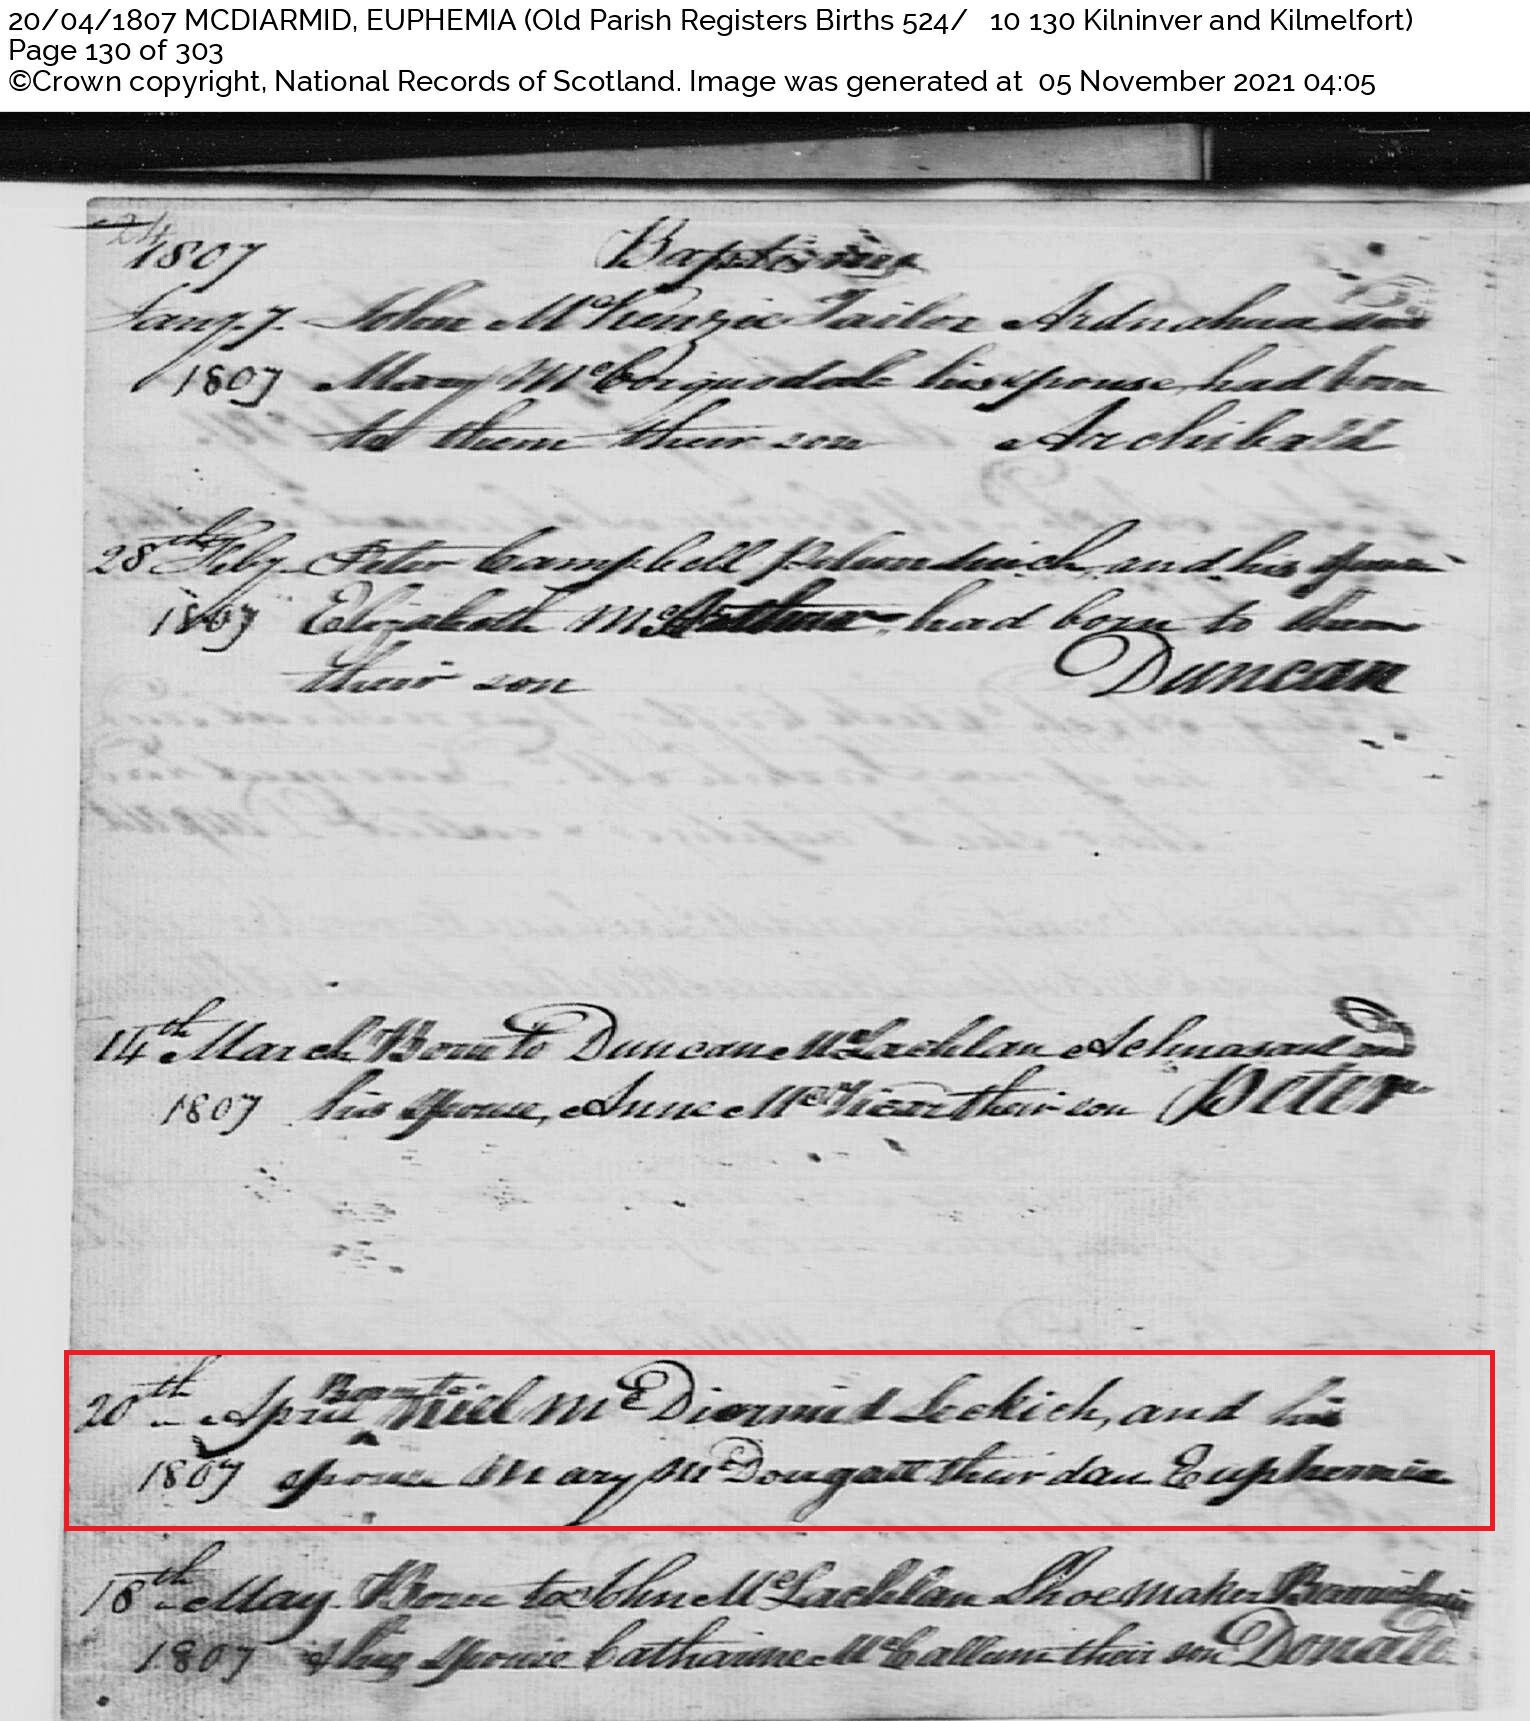 20/04/1807 MCDIARMID, EUPHEMIA (Old Parish Registers Births 524/ 10 130 Kilninver and Kilmelfort)
Page 130 of 303
©Crown copyright, National Records of Scotland. Image was generated at 05 November 2021 04:05
24
1807 Baptisms
Jany. 7. John McKenzie Tailor Ardnahua and
1807 Mary McCorquodale his spouse, had born
to them their son Archibald
28th Feby. Peter Campbell and his spouse
1807 Elizabeth McArthur, had born to them
their son Duncan
14th March Born to Duncan McLachlan and
1807 his spouse, Anne McVicar their son Peter
Born to
20th April Niel McDiarmid Leckich, and his
1807 spouse Mary McDougall their dau Euphemia
18th May. Born to John McLachlan Shoemaker
1807 & his spouse Catharine McCallum their son Donald